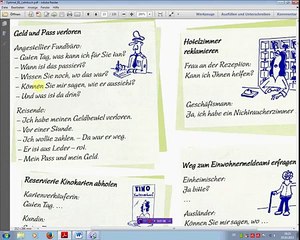 Geld und Pass verloren
Angestellter Fundbüro:
– Guten Tag, was kann ich für Sie tun?
– Wann ist das passiert?
– Wissen Sie noch, wo das war?
– Können Sie mir sagen, wie er aussieht?
– Und was ist da drin?
Reisende:
– Ich habe meinen Geldbeutel verloren.
– Vor einer Stunde.
– Ich wollte zahlen. – Da war er weg.
– Er ist aus Leder – rot.
– Mein Pass und mein Geld.
Reservierte Kinokarten abholen
Kartenverkäuferin:
Guten Tag. ...
Kundin:
KINO
Hotelzimmer
reklamieren
Frau an der Rezeption:
Kann ich Ihnen helfen?
Geschäftsmann:
Ja, ich habe ein Nichtraucherzimmer
Weg zum Einwohnermeldeamt erfragen
Einheimischer:
Ja bitte?
...
Ausländer:
Können Sie mir sagen, wo ...